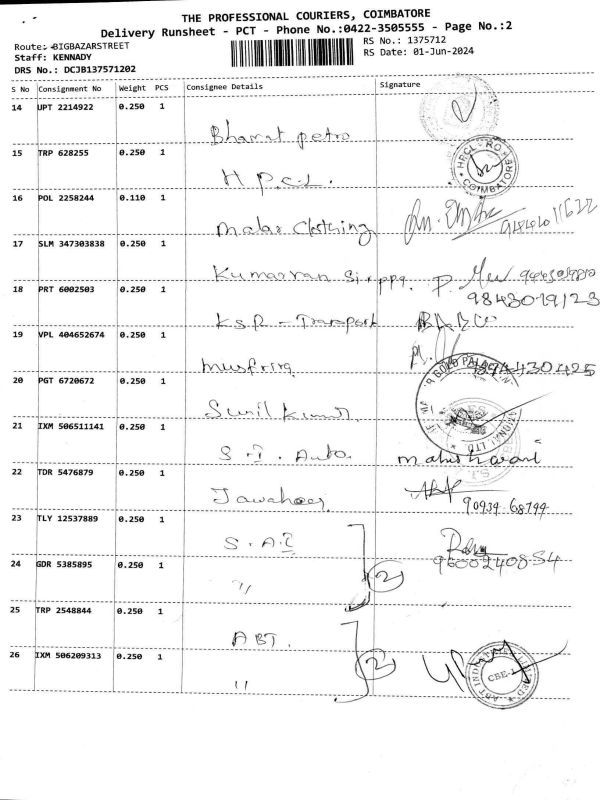 THE PROFESSIONAL COURIERS, COIMBATORE
Delivery Runsheet - PCT - Phone No.:0422-3505555 - Page No.:2
Route: BIGBAZARSTREET
RS No.: 1375712
Staff: KENNADY
RS Date: 01-Jun-2024
DRS No.: DCJB137571202
S No Consignment No Weight PCS Consignee Details Signature
14 UPT 2214922 0.250 1 Bharat petro
15 TRP 628255 0.250 1 H.P.C.L. HPCL RO COIMBATORE
16 POL 2258244 0.110 1 Malar Clothing
17 SLM 347303838 0.250 1 Kumarvan
18 PRT 6002503 0.250 1 KSR - Transport 9843019123 BABU
19 VPL 404652674 0.250 1
20 PGT 6720672 0.250 1 Sunil Kumar
21 IXM 506511141 0.250 1 S.I. Auto
22 TDR 5476879 0.250 1 90939 68799
23 TLY 12537889 0.250 1 S.A.I
24 GDR 5385895 0.250 1 " 2 9600240854
25 TRP 2548844 0.250 1 ABT.
26 IXM 506209313 0.250 1 " 2 CBE-1